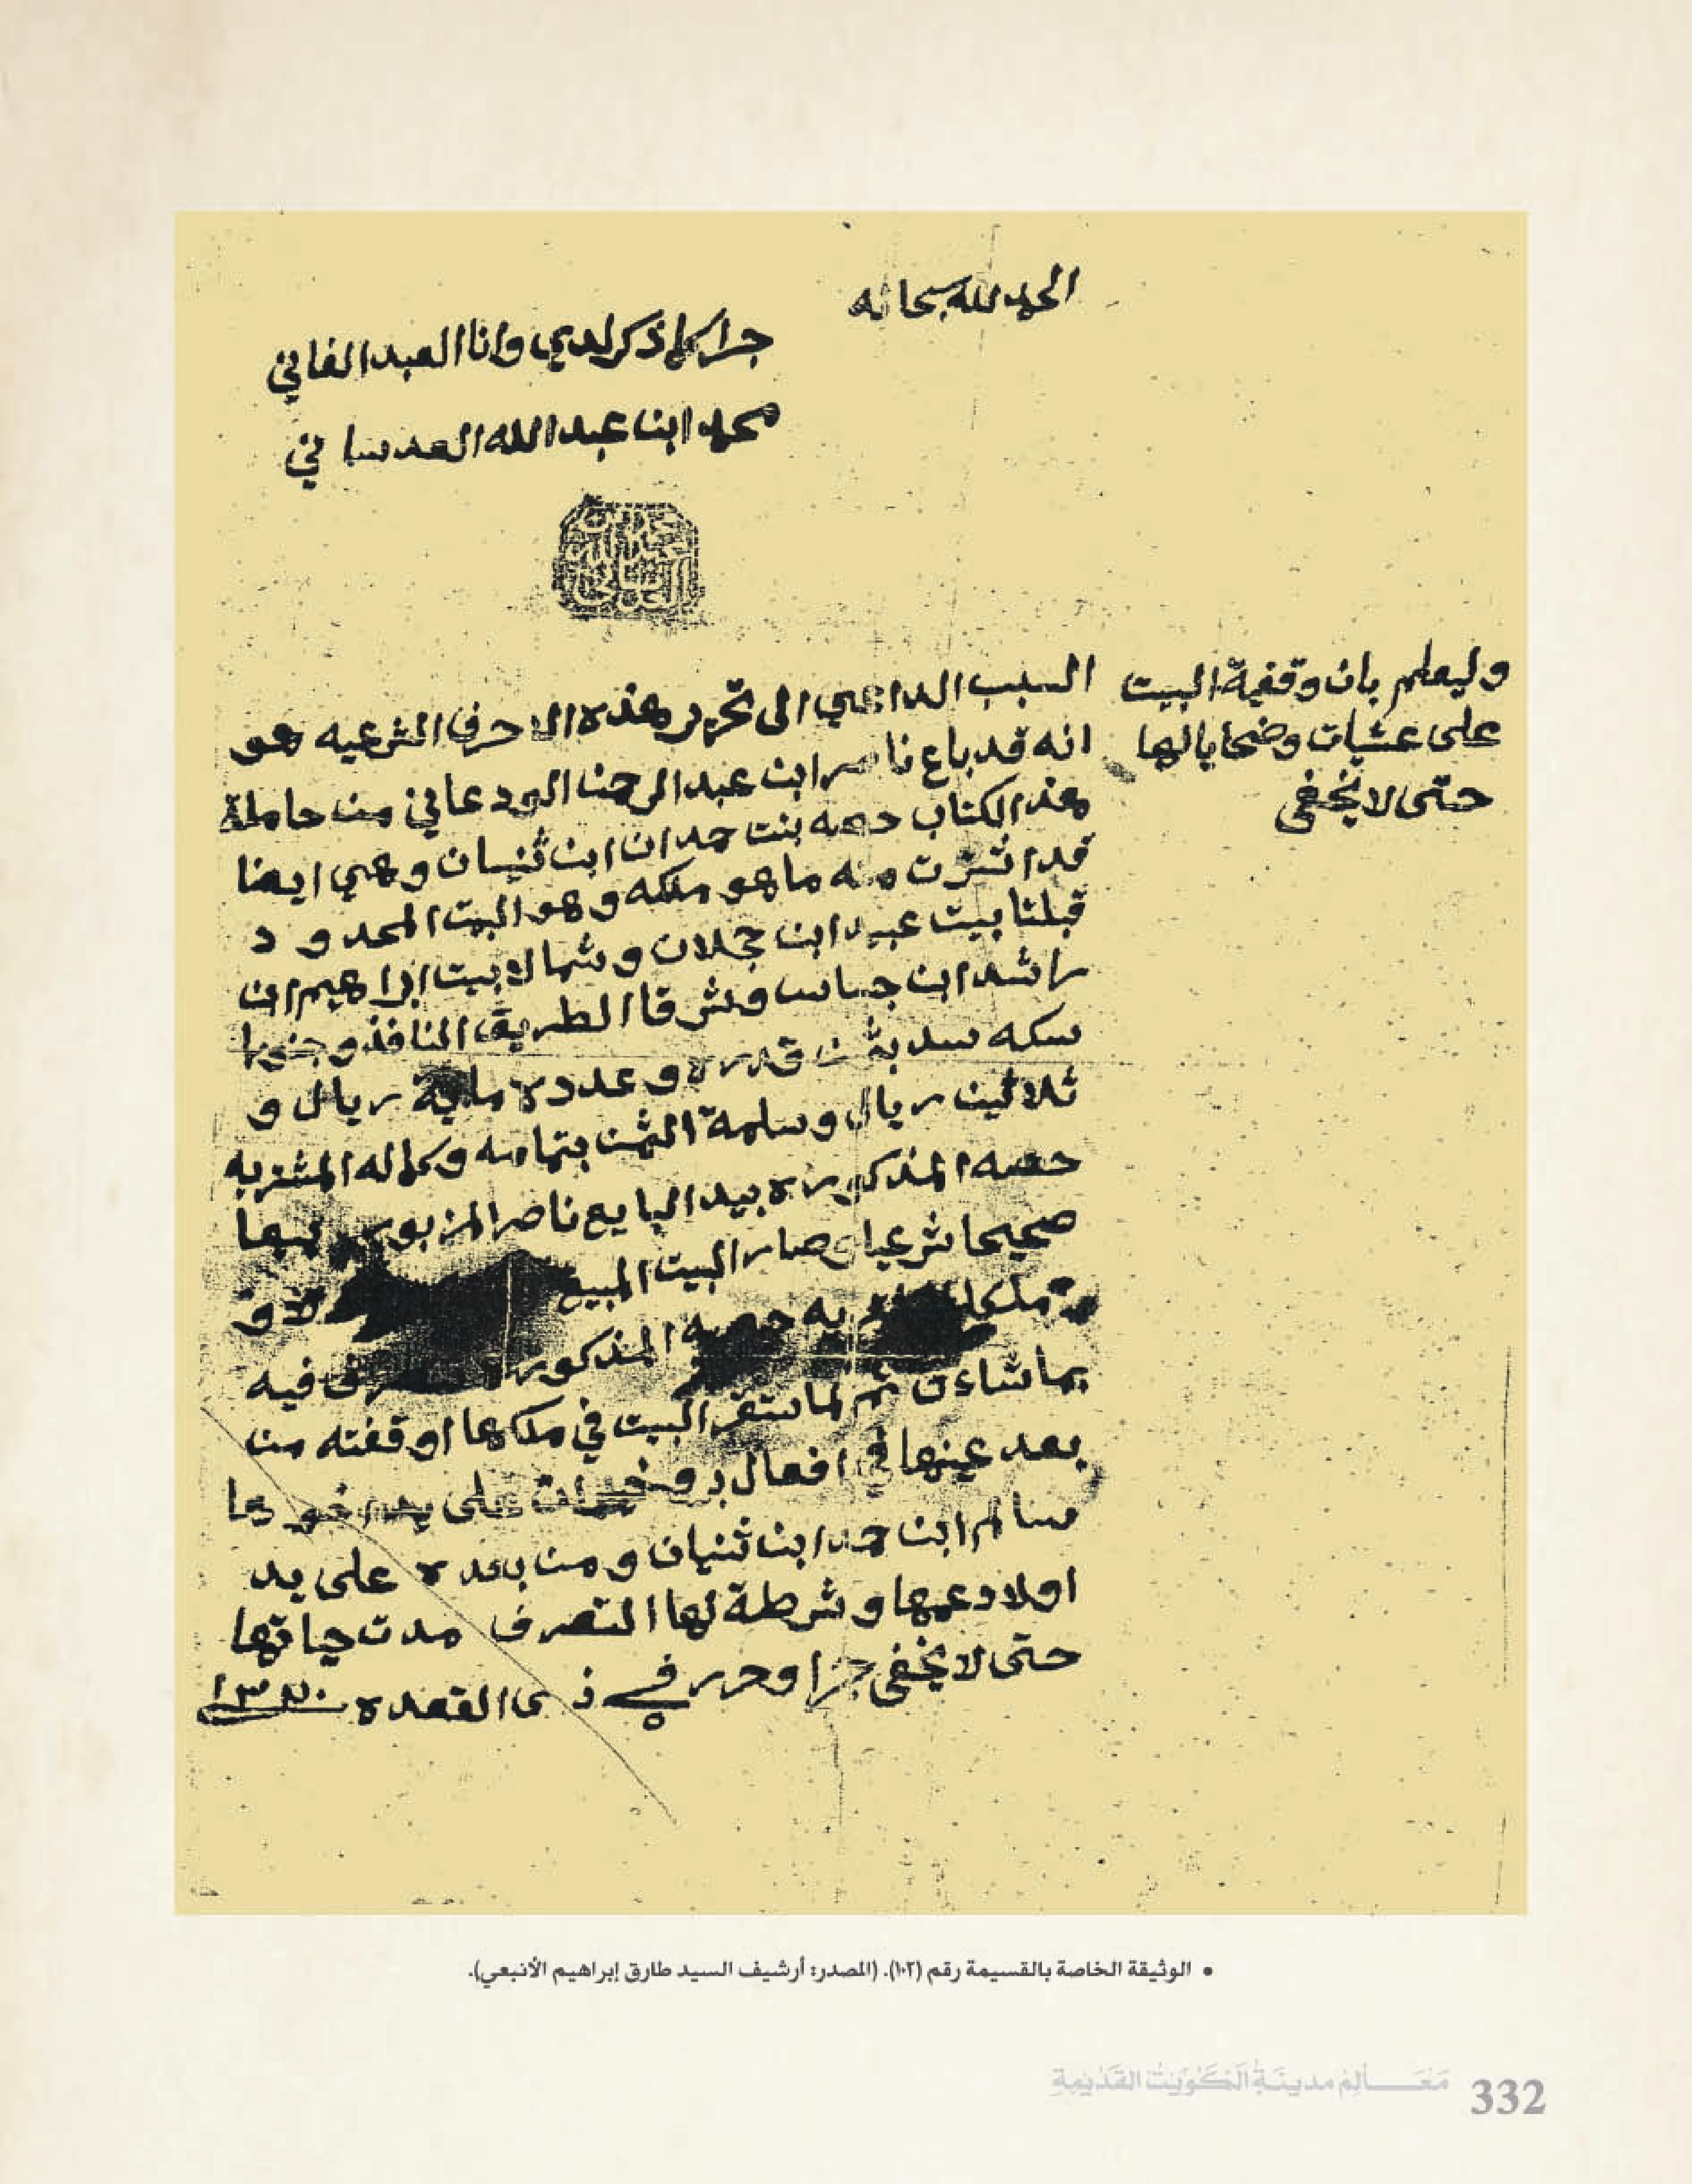 الحمد لله سبحانه
جرا كلما ذكر لدي وانا العبد الفاني
محمد ابن عبد الله العدساني
وليعلم بان وقفية البيت
على عشيات وضحايا لها
حتى لا يخفى
السبب الداعي الى تحرير هذه الاحرف الشرعيه هو
انه قد باع ناصر ابن عبد الرحمن الودعاني من حاملة
هذ الكتاب حصه بنت حمد ان ابن ثنيان وهي ايضا
قد اشترت منه ما هو ملكه وهو البيت المحدود
قبلتا بيت عبيد ابن عجلان وشمالا بيت ابراهيم ابن
راشد ابن جساس وشرقا الطريق النافذ وجنوبا
سكه سد بثمن قدره وعدده ماية ريال و
ثلاثين ريال وسلمة الثمن بتمامه وكماله المشتريه
حصه المذكوره بيد البايع ناصر المزبور بيعا
صحيحا شرعيا وصار البيت المبيع
حصه المذكوره فيه
بما شاءت ثم لما ستقر البيت في ملكها اوقفته من
بعد عينها في افعال بر وخيرات على يد اخوها
سالم ابن حمد ابن ثنيان ومن بعده على يد
اولاد عمها وشرطة لها التصرف مدت حياتها
حتى لا يخفى جرا وحرر في ذي القعده
• الوثيقة الخاصة بالقسيمة رقم (١٠٢). (المصدر: أرشيف السيد طارق إبراهيم الأنبعي).
مَعَالِمُ مدينَةِ الكُوَيتْ القَدْيمَةِ
332